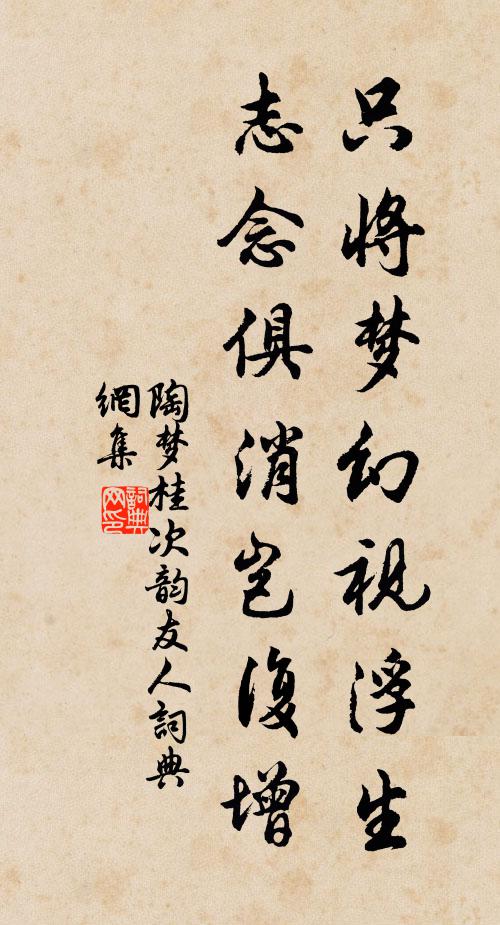 只将梦幻视浮生
志念俱消岂復增
陶梦桂次韵友人詞典
網集
詞典
网印